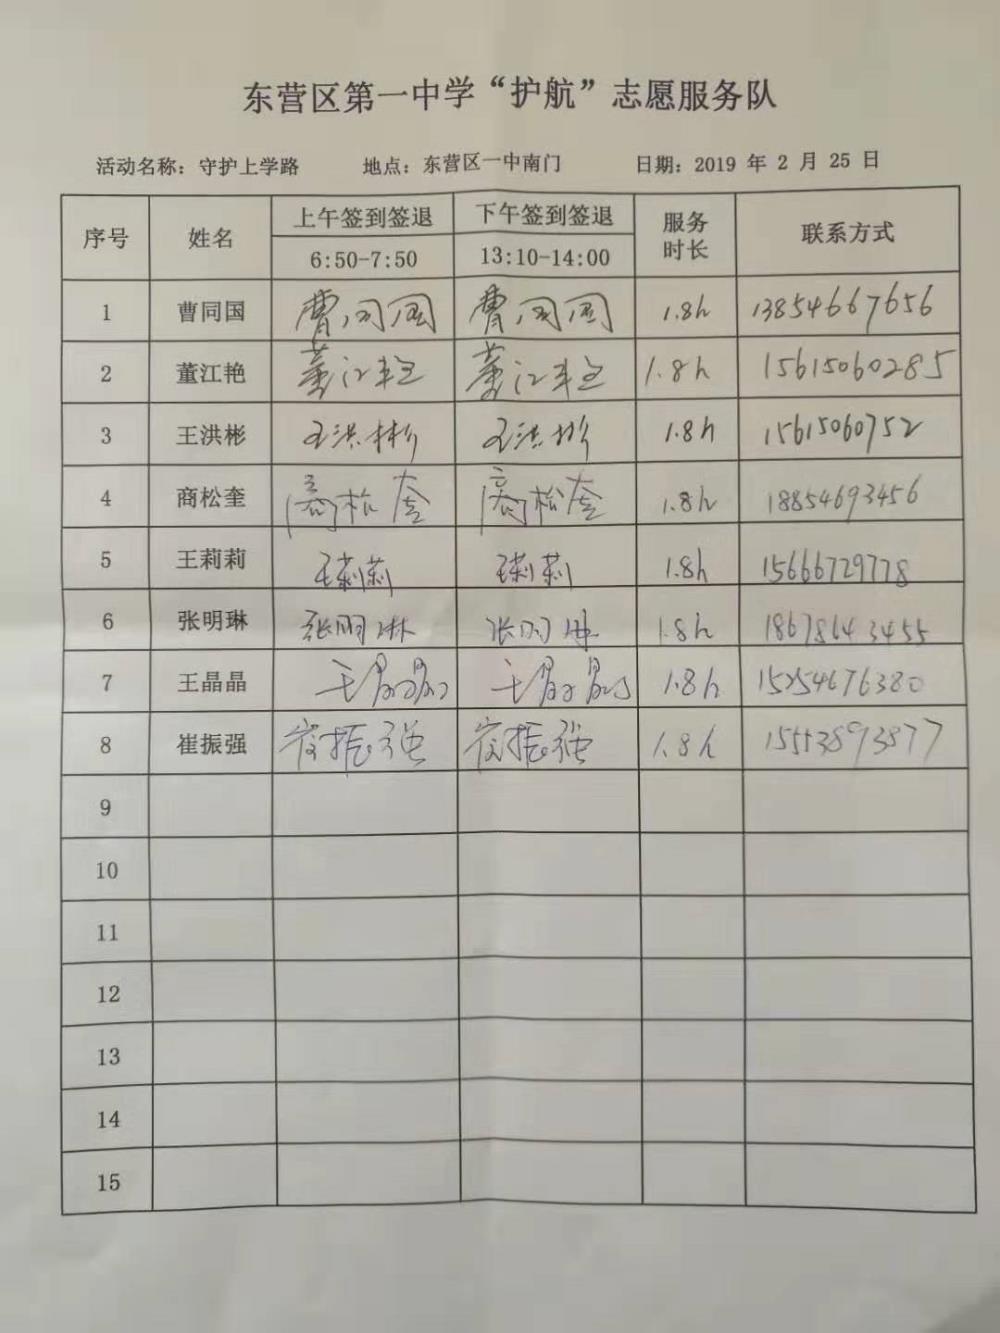 东营区第一中学“护航”志愿服务队
活动名称：守护上学路 地点：东营区一中南门 日期：2019 年 2 月 25 日
序号 姓名 上午签到签退 下午签到签退 服务时长 联系方式
6:50-7:50 13:10-14:00
1 曹同国 曹同国 曹同国 1.8h 13854667656
2 董江艳 董江艳 董江艳 1.8h 15615060285
3 王洪彬 王洪彬 王洪彬 1.8h 15615060752
4 商松奎 商松奎 商松奎 1.8h 18854693456
5 王莉莉 王莉莉 王莉莉 1.8h 15666729778
6 张明琳 张明琳 张明琳 1.8h 18678643455
7 王晶晶 王晶晶 王晶晶 1.8h 15254676380
8 崔振强 崔振强 崔振强 1.8h 15553893877
9
10
11
12
13
14
15